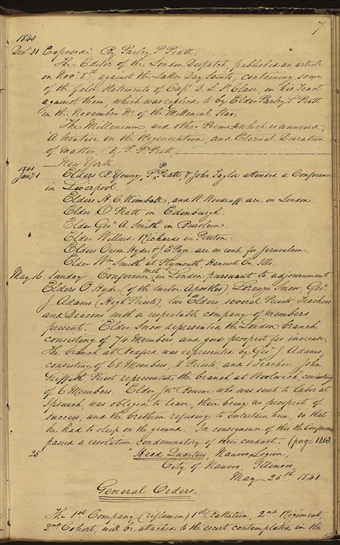 7
1840
Dec. 31 Exposed" By Parley P. Pratt.
The Editor of the London Dispatch, published an article
on Nov. 8th against the Latter Day Saints, containing some
of the false statements of Capt. D. L. St. Clair, in his Tract
against them, which was replied to by Elder Parley P. Pratt
in the November No. of the Millennial Star.
The Millennium, and other Poems, to which is annexed,
A treatise on the Regeneration, and Eternal Duration
of Matter. By P. P. Pratt.
New York.
1841
Jany. 1 Elders B. Young, P. P. Pratt & John Taylor attended a Conference
in Liverpool.
Elders H. C. Kimball, and W. Woodruff are in London
Elder O. Pratt in Edenburgh.
Elder Geo. A. Smith in Burslem.
Elder Willard Richards in Preston.
Elders Orson Hyde & J. E. Page are en route for Jerusalem.
Elder Wm. Smith at Plymouth, Hancock Co. Ills.
May 16 Sunday Conference met in London, pursuant to adjournment
Elders O. Hyde (of the twelve Apostles) Lorenzo Snow, Geo.
J. Adams (High Priests) two Elders several Priests, Teachers
and Deacons with a respectable company of members
present. Elder Snow represented the London branch
consisting of 74 Members and good prospect for increase.
The branch at was represented by Geo. J. Adams
consisting of 68 Members, 8 Priests, and 1 Teacher. John
Griffith, Priest represented the branch at Woolwich, consisting
of 6 Members. Elder Wm. who was sent to labor at
Ipswich, was obliged to leave, there being no prospect of
success, and the brethren refusing to entertain him, so that
he had to sleep on the ground. In consequence of this the Conference
passed a resolution condemnatory of their conduct. (page
25 Head Quarters, Nauvoo Legion,
City of Nauvoo, Illinois
May 25th 1841
General Orders.
The 1st Company (riflemen) 1st Battalion, 2nd Regiment,
2nd Cohort, will be attached to the escort contemplated in the